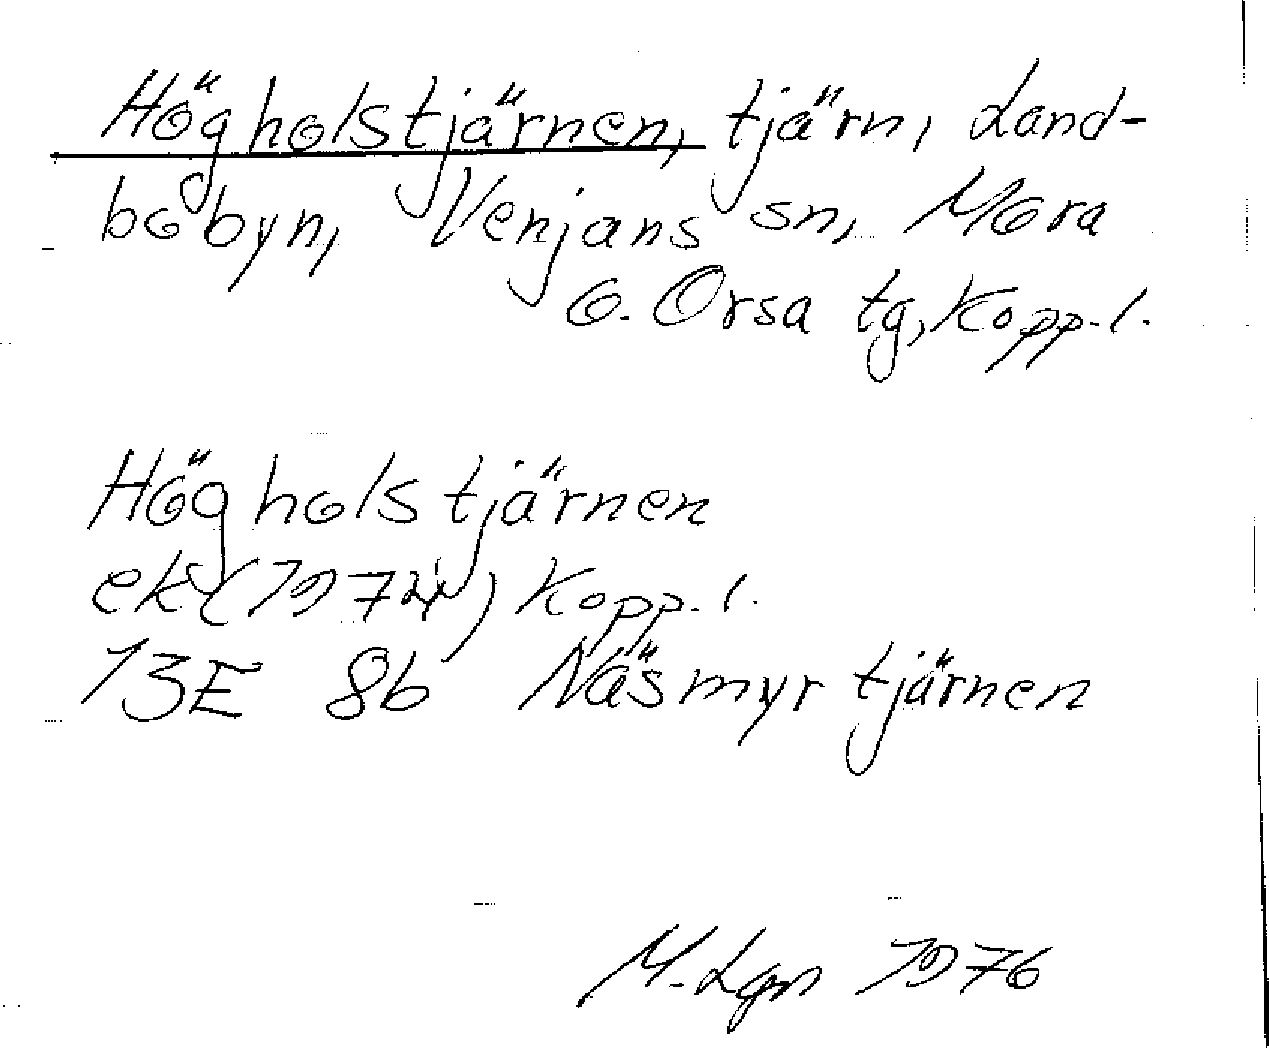 Högholstjärnen, tjärn, Land-
bobyn, Venjans sn, Mora
o. Orsa tg, Kopp. l.
Högholstjärnen
ek (1974) Kopp. l.
13E 8b Näsmyrtjärnen
M. Lgn 1976